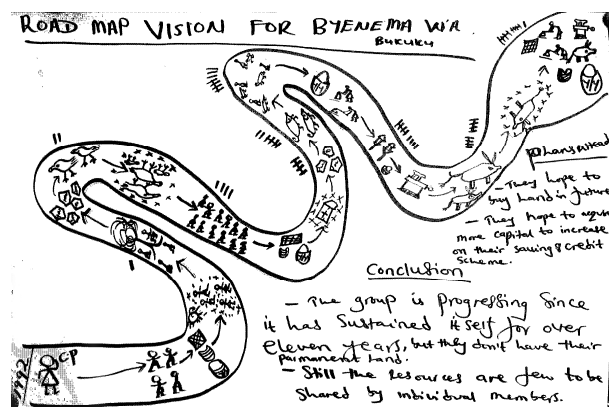 ROAD MAP VISION FOR BYENEMA W/A
BUKUKU
Plans ahead
- They hope to
buy land in future
- They hope to
more capital to increase
on their saving & credit
scheme.
Conclusion
- The group is progressing since
it has sustained itself for over
eleven years, but they don't have their
permanent land.
- Still the resources are few to be
shared by individual members.
1992
CP